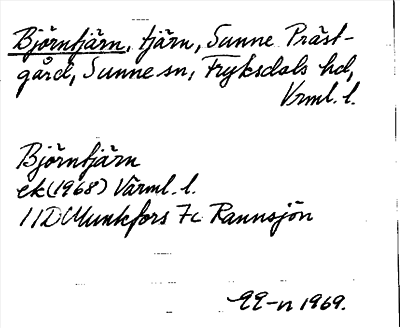 Björntjärn, tjärn, Sunne Präst-
gård, Sunne sn, Fryksdals hd,
Vrml. l.
Björntjärn
ek (1968) Värml. l.
11D Munkfors 7c Rannsjön
1969.